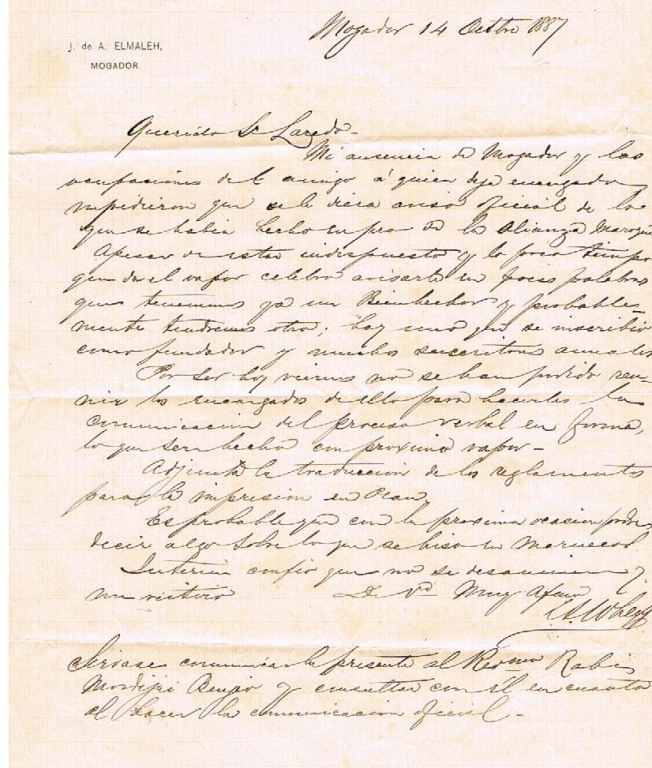 J. de A. ELMALEH,
MOGADOR.
Mogador 14 Octbre 1887
Querido Sr Laredo-
Mi ausencia de Mogador y las
ocupaciones del amigo á quien dejé encargado
impedieron que se le diera aviso oficial de lo
que se habia hecho en pro de la Alianza
Apesar de estar indispuesto y lo poco tiempo
que da el vapor celebro avisarle en pocas palabras
que tenemos ya un Bienhechor y probable-
mente tendremos otro; hay uno que se inscribió
como fundador y muchos suscritores anuales
Por ser hoy viernes no se han podido reu-
nir los encargados de ello para hacerles la
comunicacion del proceso verbal en forma,
lo que sera hecho con proximo vapor-
Adjunto la traduccion de los reglamentos
para la impresion en
Es probable que con la proxima ocasion podré
decir algo sobre lo que se hiso en Marruecos
Interin confio que no se desanimen y
me reitero De Vd Muy Afmo
Sirvase comunicar la presente al Rabi
y consultar con él en cuanto
al hacer la comunicacion oficial-